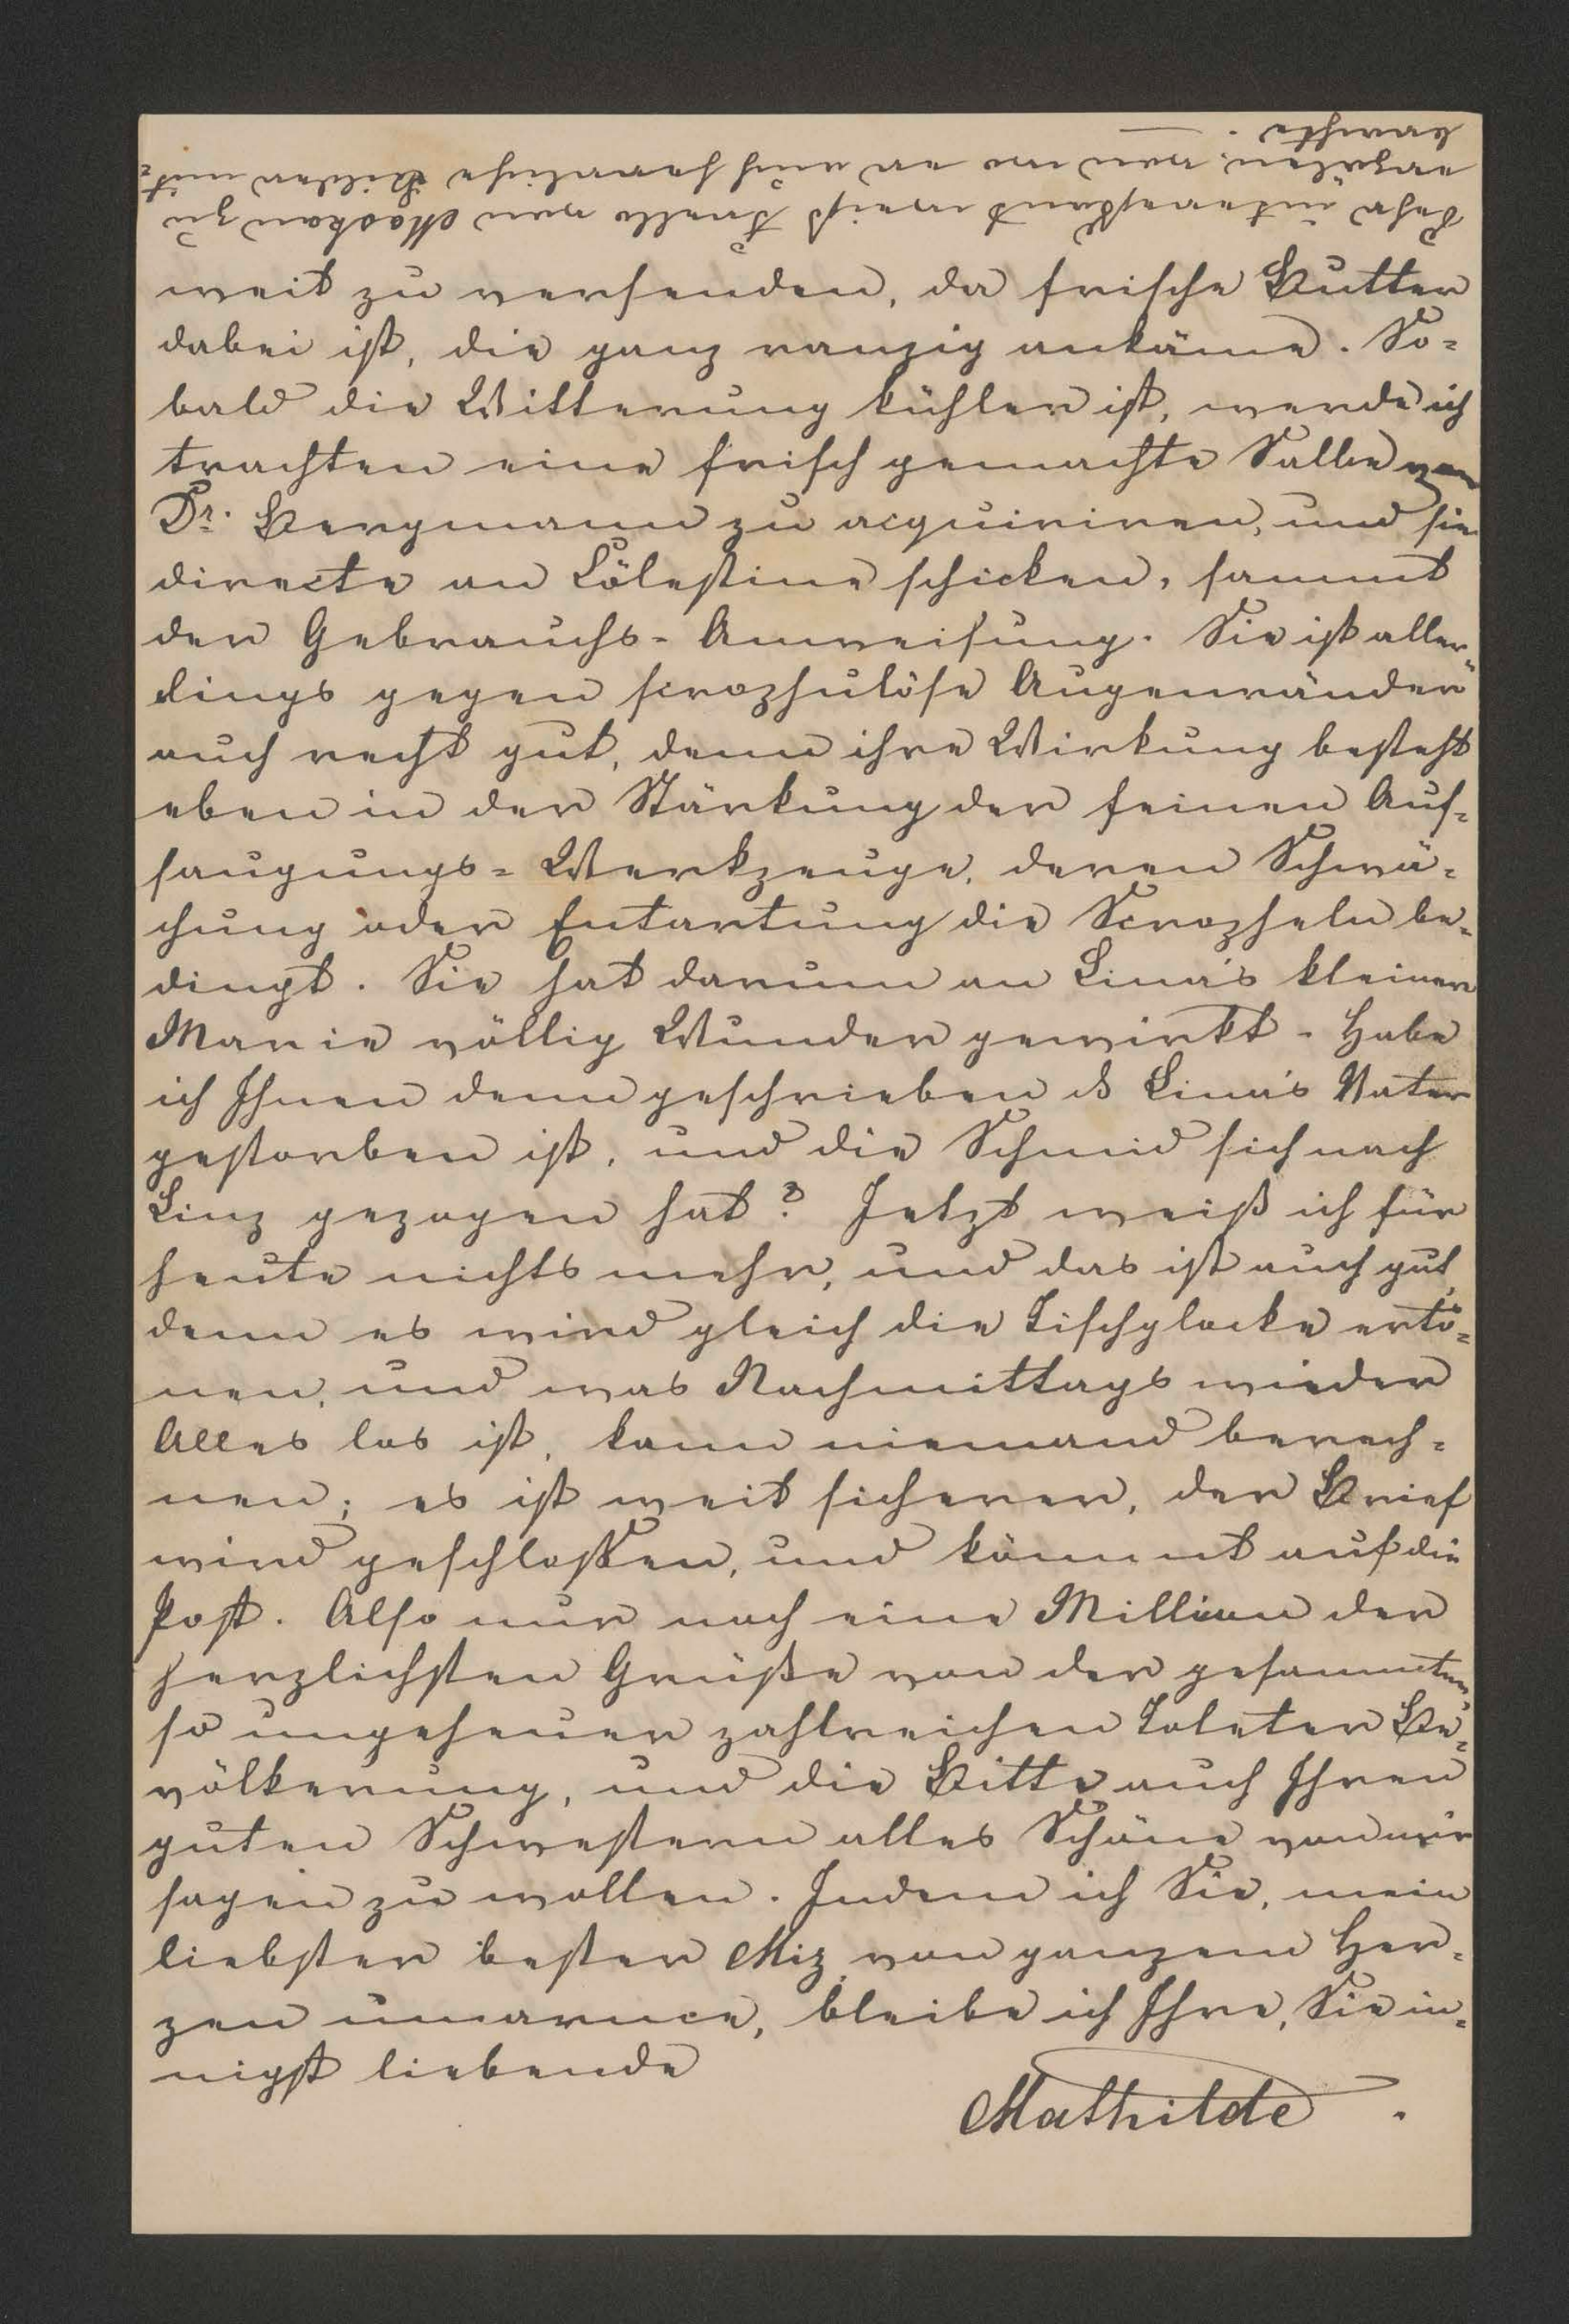 Sehr interessant weiß Trello von Moskau zu
erzälen, von wo er auch herrliche Bilder mit-
brachte. —
weit zu versenden, da frische Butter
dabei ist, die ganz ranzig ankäme. So-
bald die Witterung kühler ist, werde ich
trachten eine frisch gemachte Salbe von
Dr. Bergmann zu acquiriren, und sie
directe an Cölestine schicken, sammt
der Gebrauchs-Anweisung. Sie ist aller-
dings gegen scrophulöse Augenränder
auch recht gut, denn ihre Wirkung besteht
eben in der Stärkung der feinen Auf-
saugungs-Werkzeuge, deren Schwä-
chung oder Entartung die Scropheln be-
dingt. Sie hat darum an Lina's kleiner
Marie völlig Wunder gewirkt. - Habe
ich Ihnen denn geschrieben ds Lina's Vater
gestorben ist, und die Schmid sich nach
Linz gezogen hat? Jetzt weiß ich für
heute nichts mehr, und das ist auch gut,
denn es wird gleich die Tischglocke ertö-
nen, und was Nachmittags wieder
Alles los ist, kann niemand berech-
nen; es ist weit sicherer, der Brief
wird geschloßen, und kömmt auf die
Post. Also nur noch eine Million der
herzlichsten Grüße von der gesammten,
so ungeheuer zahlreichen Toleter Be-
völkerung, und die Bitte auch Ihren
guten Schwestern alles Schöne von mir
sagen zu wollen. Indem ich Sie, mein
liebster bester Miz, von ganzem Her-
zen umarme, bleibe ich Ihre, Sie in-
nigst liebende
Mathilde.